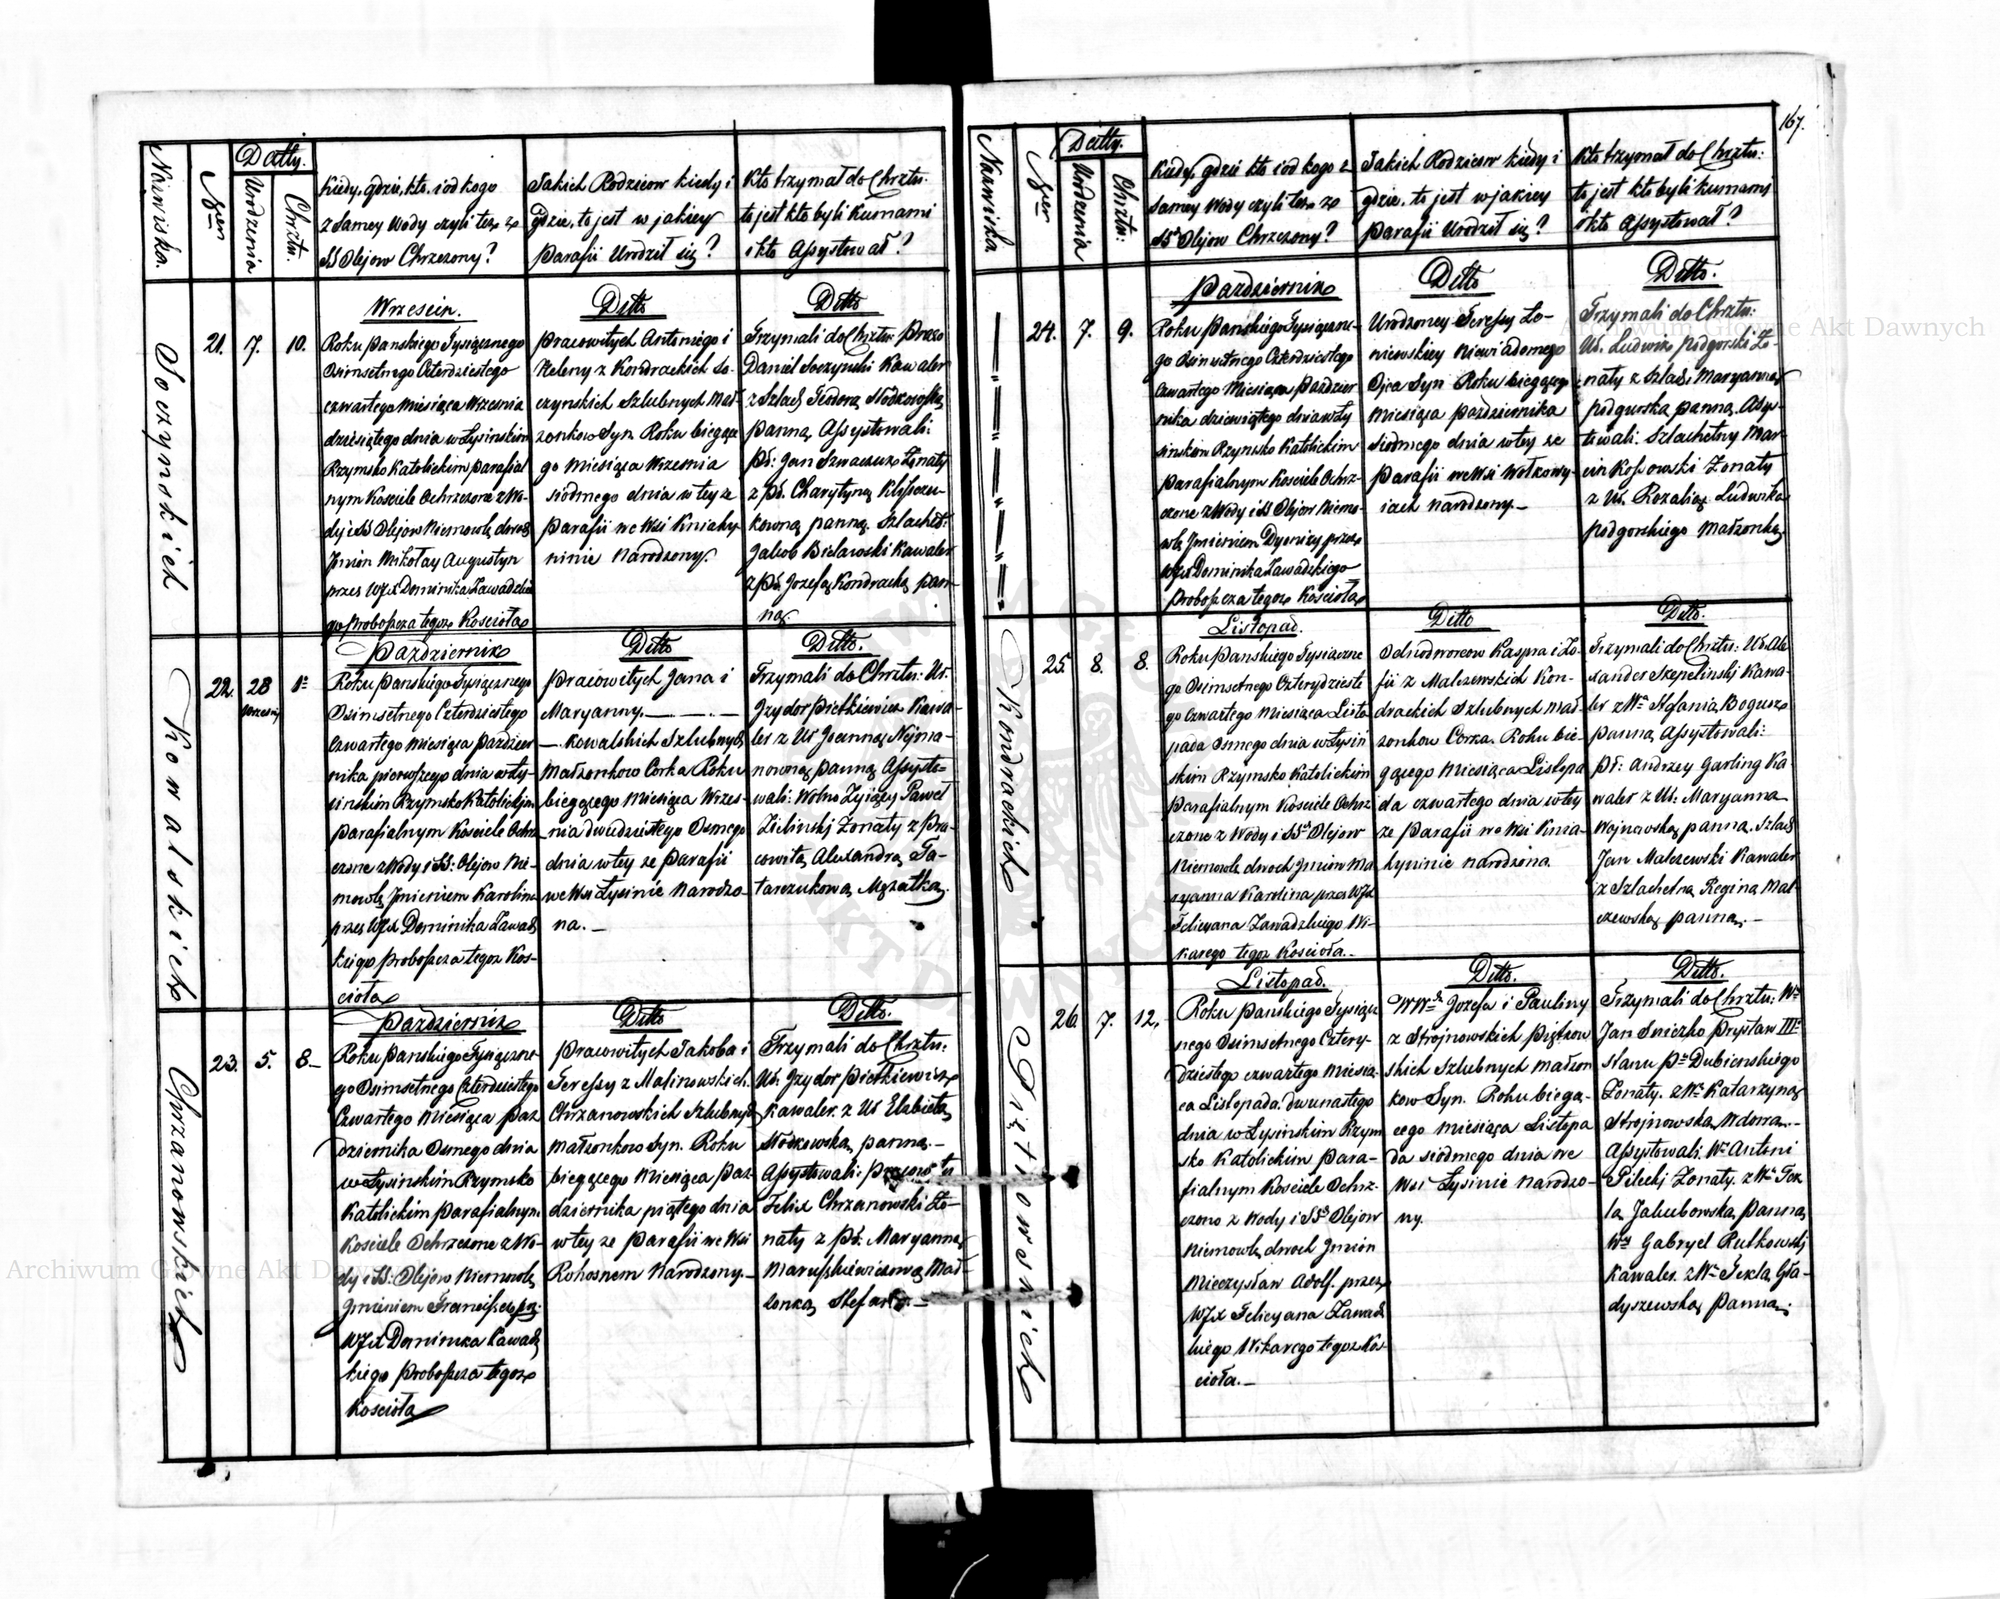 167.
Nazwiska.
Nren
Datty.
Urodzenia
Chrztu.
Kiedy, gdzie, kto, i od kogo
z Samey Wody czyli też ze
SS Olejow Chrzczony?
Jakich Rodzicow kiedy i
gdzie, to jest w jakiey
Parafii Urodził się?
Kto trzymał do Chrztu.
to jest kto byli Kumami
i kto Assystował?
Soczynskich
21.
7.
10.
Wrzesien.
Roku Panskiego Tysiącznego
Osimsetnego Czterdziestego
czwartego Miesiąca Wrzesnia
dziesiątego dnia w Łysinskim
Rzymsko Katolickim Parafial
nym Kosciele Ochrzczone z Wo-
dy i SS Olejow Niemowle dwoch
Jmion Mikołay Augustyn
przez WJX Dominika Zawadzkie
go Proboszcza tegoż Kościoła
Ditto
Pracowitych Antoniego i
Heleny z Kondrackich So-
czynskich Szlubnych Mał-
zonkow Syn Roku biegące
go Miesiąca Wrzesnia
siodmego dnia w tey ze
Parafii we Wsi Kniahy-
ninie Narodzony.
Ditto
Trzymali do Chrztu: Praco
Daniel Soczynski Kawaler
z Szlach Teodorą Slodkowską
Panną Assystowali:
Jan Szwaczuk Żonaty
z Charytyną Kliszczu-
kowną panną. Szlachet:
Jakob Bielawski Kawaler
z Jozefą Kondracką pan-
ną.
Kowalskich
22.
28
Wrzesnia
1º
Pazdziernik
Roku Panskiego Tysiącznego
Osimsetnego Czterdziestego
Czwartego Miesiąca Pazdzier
nika pierwszego dnia w Ły-
sinskim Rzymsko Katolickim
Parafialnym Kosciele Ochrz
czone z Wody i SS: Olejow Nie-
mowlę Jmieniem Karolina
przez WJX Dominika Zawadz
kiego Proboszcza tegoz Kos-
cioła
Ditto
Pracowitych Jana i
Maryanny. — . — . —
— Kowalskich Szlubnych
Małzonkow Corka Roku
biegącego Miesiąca Wrzes-
nia dwudziestego Osmego
dnia w tey ze Parafii
we Wsi Łysinie Narodzo-
na. —
Ditto.
Trzymali do Chrztu: Ur.
Jzydor Pietkiewicz Kawa-
ler z Ur Joanną Neyma-
nowną panną Assysto-
wali: Wolno Zyiący Paweł
Zielinski Żonaty z Pra-
cowitą Alexandrą Ta-
tarczukową Mężatką.
Chrzanowskich
23.
5.
8.—
Pazdziernik
Roku Panskiego Tysiączne-
go Osimsetnego Czterdziestego
Czwartego Miesiąca Paz
dziernika Osmego dnia
w Łysinskim Rzymsko
Katolickim Parafialnym
Kosciele Ochrzczone z Wo-
dy i SS. Olejow Niemowlę
Jmieniem Franciszek prz.
WJX Dominika Zawadz
kiego Proboszcza tegoz
Kościoła
Ditto
Pracowitych Jakoba i
Teressy z Malinowskich
Chrzanowskich Szlubnych
Małzonkow Syn. Roku
biegącego Miesiąca Paz-
dziernika piątego dnia
w tey ze Parafii we Wsi
Rohosnem Narodzony.—
Ditto.
Trzymali do Chrztu:
Ur. Jzydor Pietkiewicz
Kawaler. z Ur Elzbietą
Słodkowską panną.—
Assystowali: Pracowity
Felix Chrzanowski Żo-
naty z Maryanną
Maruszkiewiczową Mał-
zonką Stefana.—
Nazwiska
Nren
Datty.
Urodzenia
Chrztu:
Kiedy, gdzie kto i od kogo z
Samey Wody czyli też ze
SSch Olejow Chrzczony?
Jakich Rodzicow kiedy i
gdzie, to jest w jakiey
Parafii Urodził się?
Kto trzymał do Chrztu:
to jest kto byli Kumami
i kto Assystował?
24.
7.
9.
Pazdziernik
Roku Panskiego Tysiączne-
go Osimsetnego Czterdziestego
Czwartego Miesiąca Pazdzier
nika dziewiątego dnia w Ły
sinskim Rzymsko Katolickim
Parafialnym Kosciele Ochrz-
czone z Wody i SS Olejow Niemo-
wlę Jmieniem Dyonizy przez
WJX Dominika Zawadzkiego
Proboszcza tegoz Kościoła
Ditto
Urodzoney Teressy Ło-
niewskiey Niewiadomego
Ojca Syn Roku biegącego
Miesiąca Pazdziernika
Siodmego dnia w tey ze
Parafii we Wsi Wołkowy-
iach Narodzony.—
Ditto.
Trzymali do Chrztu:
Ur. Ludwik Podgorski Żo-
naty z Szlach Maryanną
Podgurską panną. Assys-
towali: Szlachetny Mar-
cin Kossowski Żonaty
z Ur. Rozalią Ludwika
Podgorskiego Małzonką.
Kondrackich
25.
8.
8.
Listopad.
Roku Panskiego Tysiączne
go Osimsetnego Czterydzieste
go Czwartego Miesiąca Listo
pada Osmego dnia w Łysin
skim Rzymsko Katolickim
Parafialnym Kosciele Ochrz
czone z Wody i SSch Olejow
Niemowle dwoch Jmion Ma
ryanna Karolina przez WJX
Felicyana Zawadzkiego Wi-
karego tegoz Kościoła.—
Ditto
Odnodworcow Kaspra i Zo-
fii z Malczewskich Kon-
drackich Szlubnych Mał-
zonkow Corka. Roku bie-
gącego Miesiąca Listopa
da czwartego dnia w tey
ze Parafii we Wsi Knia-
hyninie Narodzona.
Ditto.
Trzymali do Chrztu: Ur. Ale
xander Szepelinski Kawa-
ler z Stefanią Bogusz
panną Assystowali:
Andrzey Garling Ka-
waler z Ur: Maryanną
Woynowską panną. Szlach
Jan Malczewski Kawaler
z Szlachetną Reginą Mal-
czewską panną.—
Piątkowskich
26.
7.
12.
Listopad.
Roku Panskiego Tysiącz
nego Osimsetnego Cztery-
dziestego czwartego Miesią-
ca Listopada. dwunastego
dnia w Łysinskim Rzym
sko Katolickim Para-
fialnym Kosciele Ochrz-
czono z Wody i SSch Olejow
Niemowlę dwoch Jmion
Mieczysław Adolf. przez
WJX Felicyana Zawadz
kiego Wikarego tegoz Kos-
cioła.—
Ditto.
WWch Jozefa i Pauliny
z Strojnowskich Piątkow
skich Szlubnych Małzon
kow Syn. Roku biegą-
cego Miesiąca Listopa
da siodmego dnia we
Wsi Łysinie Narodzo-
ny.
Ditto.
Trzymali do Chrztu: Wny
Jan Sniezko Prystaw IIIo
Stanu Dubienskiego
Żonaty. z Katarzyną
Strojnowską Wdową.—
Assystowali. Wny Antoni
Pilecki Żonaty. z Tek
lą Jakubowską, Panną,
Wny Gabryel Rutkowski
Kawaler. z Teklą Gła-
dyszewską Panną.
Archiwum Główne Akt Dawnych
Archiwum Główne Akt Dawnych